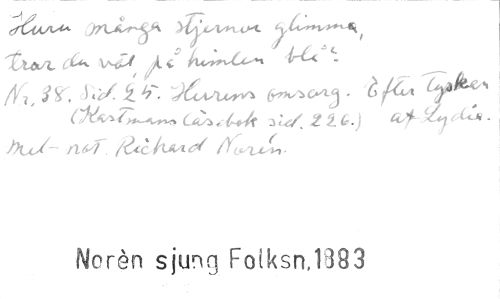 Huru många stjernor glimma,
tror du väl, på himlen blå?
Nr. 38. Sid. 25. Herrens omsorg. Efter Tyskan
(Kastmans läsebok sid. 226.) af Lydia.
Mel- not. Richard Norén.
Norèn sjung Folksn,1883